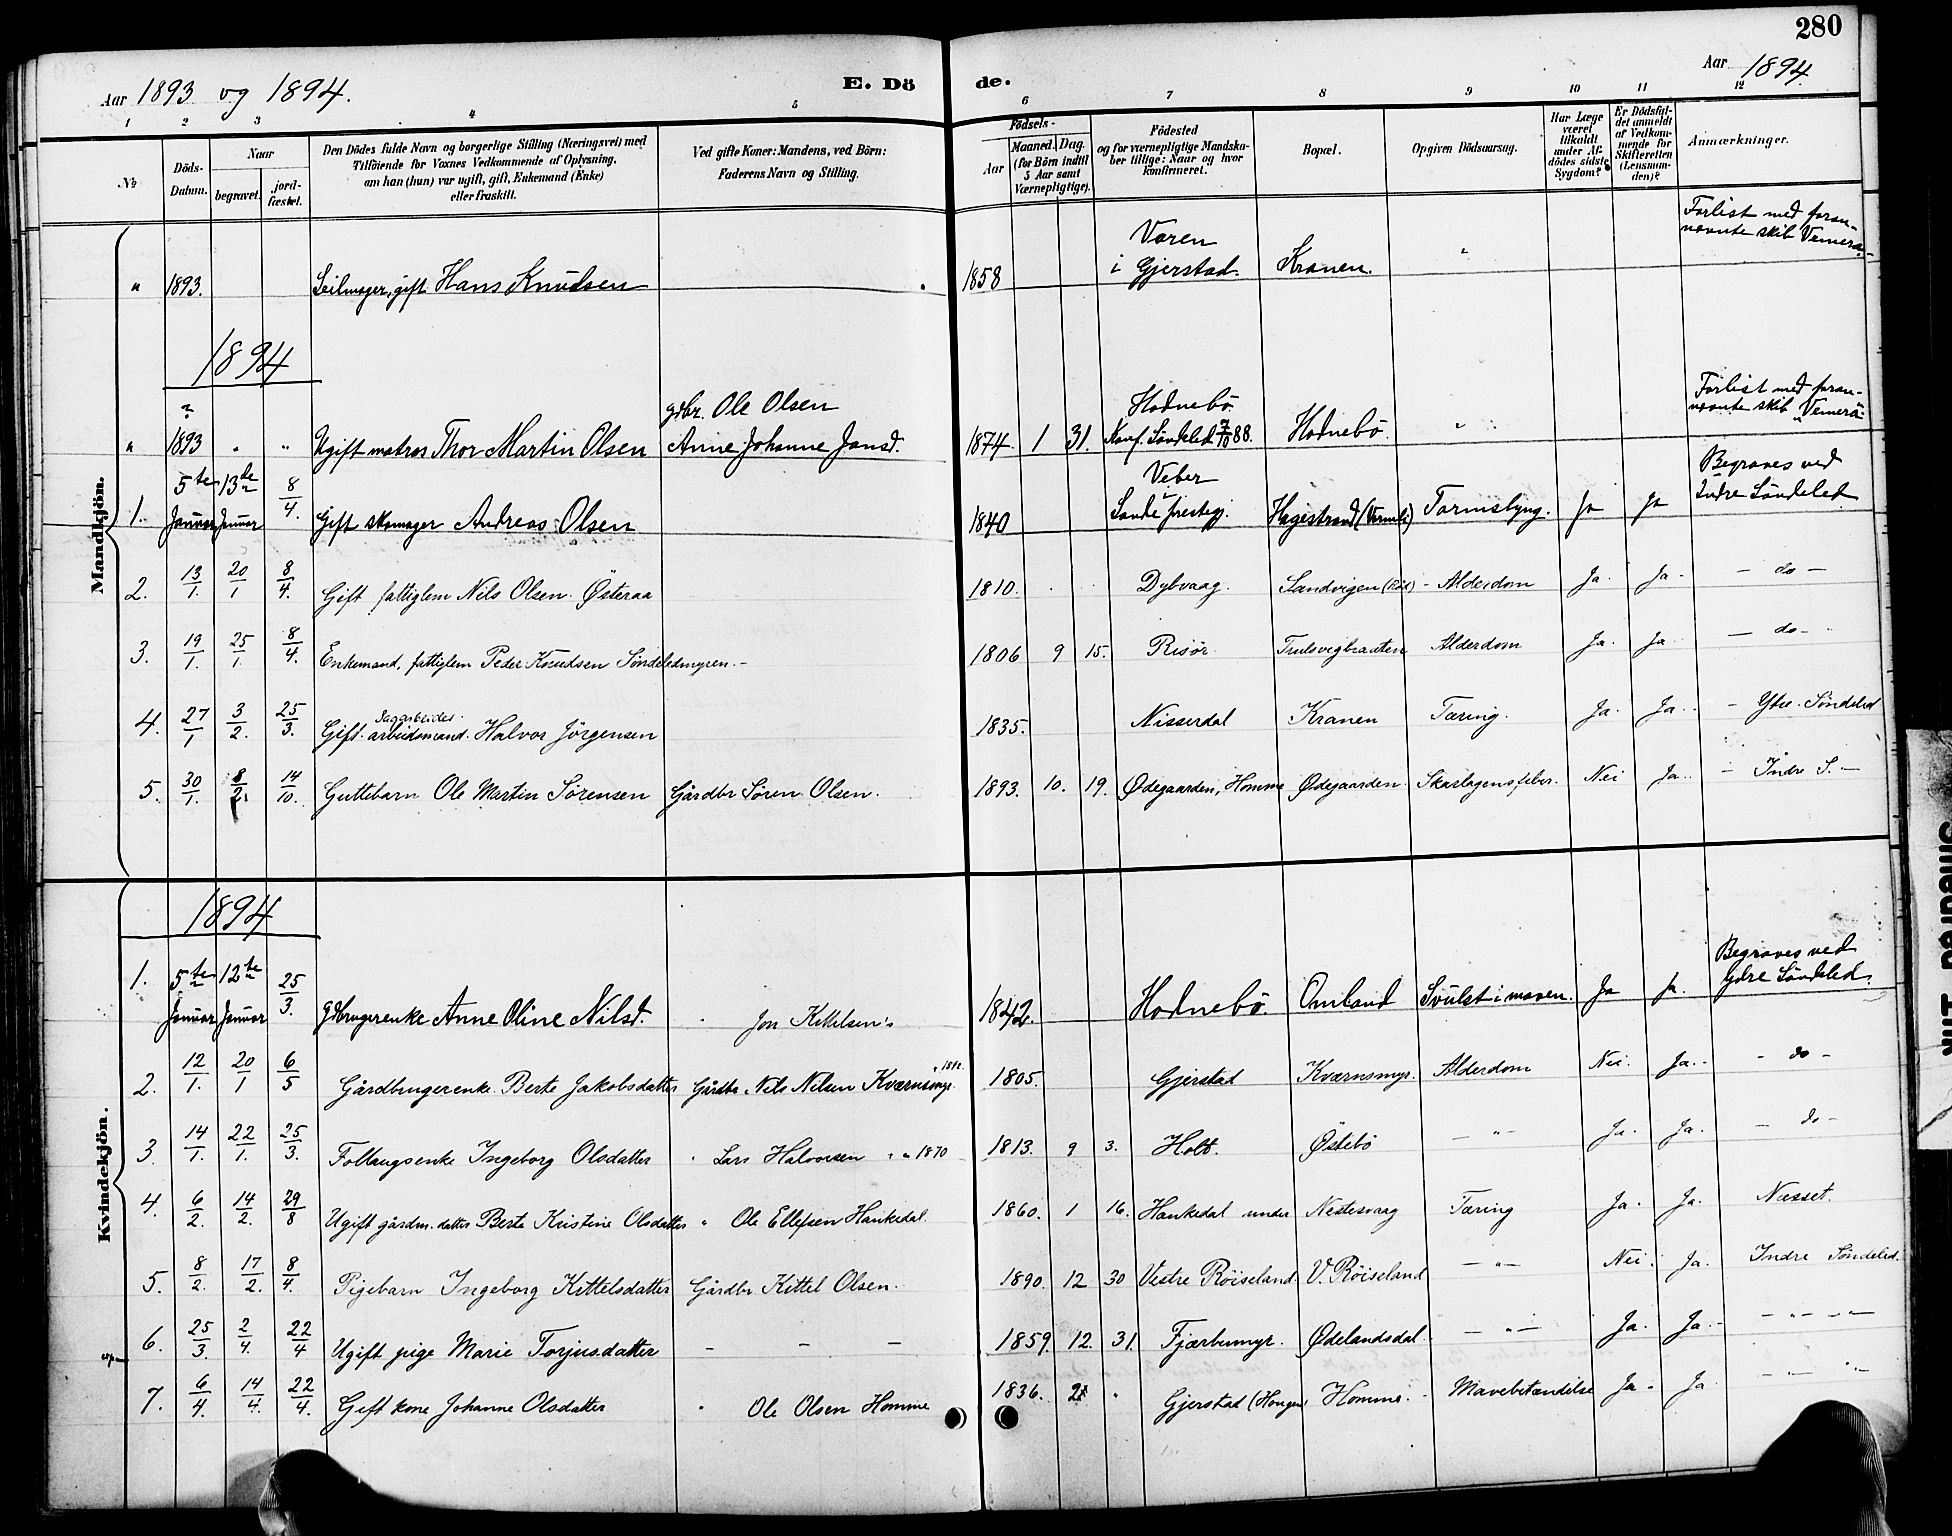 280
Aar 1893 og 1894. E. Dö de. Aar 1894
1 2 3 4 5 6 7 8 9 10 11 12
№
Döds-Datum.
Naar
begravet.
jord-fæstet.
Den Dödes fulde Navn og borgerlige Stilling (Næringsvei) med
Tilföiende for Voxnes Vedkommende af Oplysning,
om han (hun) var ugift, gift, Enkemand (Enke)
eller fraskilt.
Ved gifte Koner: Mandens, ved Börn:
Faderens Navn og Stilling.
Födsels-
Aar
Maaned. Dag.
(for Börn indtil
5 Aar samt
Værnepligtige).
Födested
og for værnepligtige Mandska-
ber tillige: Naar og hvor
konfirmeret.
Bopæl.
Opgiven Dödsaarsag.
Har Læge
været
tilkaldt
under Af-
dödes sidste
Sygdom?
Er Dödsfal-
det anmeldt
af Vedkom-
mende for
Skifteretten
(Lensman-
den)?
Anmærkninger.
Mandkjön.
" 1893. Seilmager, gift Hans Knudsen 1858 Varen i Gjerstad. Kranen. " Forlist med foran-
nævnte skib
1894
" ? 1893 " " Ugift matros Thor Martin Olsen gdbr. Ole Olsen
Anne Johanne Jansd. 1874 1 31. Hodnebö Konf. Söndeled 7/10 88. Hodnebö " Forlist med foran-
nævnte skib
1. 5te Januar 13de Januar 8/4. Gift skomager Andreas Olsen 1840 Veber Sande prestegj. Hagestrand Tarmslyng. Ja Ja Begraves ved
Indre Söndeled
2. 13/1. 20/1 8/4. Gift fattiglem Nils Olsen Østeraa 1810. Dybvaag. Sandvigen (Röd) - Alderdom Ja. Ja - - do -
3. 19/1. 25/1. 8/4. Enkemand, fattiglem Peder Knudsen Søndeledmyren. - 1806 9 15. Risör Trulsvigbraaten Alderdom Ja. Ja - do -
4. 27/1 3/2. 25/3. Gift Sagarbeider. arbeidsmand. Halvor Jörgensen 1835. Nisserdal Kranen Tæring. Ja. Ja. - Ytre Söndeled
5. 30/1. 8/2. 14/10. Guttebarn Ole Martin Sørensen Gårdbr Søren Olsen. 1893. 10. 19. Ødegaarden, Homme Ødegaarden. Skarlagensfeber. Nei Ja. - Indre S. -
Kvindekjön.
1894
1. 5te Januar 12te Januar 25/3. Gdbrugerenke Anne Oline Nilsd. " Jon Kittelsen's 1842. Hodnebö. Omland Svulst i maven. Ja Ja. Begraves ved
Ydre Söndeled.
2. 12/1. 20/1 6/5 Gårdbrugerenke. Berte Jakobsdatter Gårdbr Nils Nilsen Kværnsmyr. 1805. Gjerstad Kværnsmyr. Alderdom Nei. Ja. - do -
3. 14/1. 22/1. 25/3. Follaugsenke Ingeborg Olsdatter " Lars Halvorsen " " 1870 1813. 9 3. Holt. Østebö - " - Ja. Ja. - do -
4. 6/2. 14/2. 29/8 Ugift gårdm. datter Berte Kristine Olsdatter " Ole Ellefsen Hankedal. 1860. 1 16. Hankedal under Nestesvaag Tæring Ja. Ja. Næsset.
5. 8/2. 17/2. 8/4. Pigebarn Ingeborg Kittelsdatter Gårdbr Kittel Olsen. 1890. 12 30 Vestre Röiseland. V. Röiseland - " - Nei. Ja. Indre Søndeled.
6. 25/3. 2/4. 22/4 Ugift pige Marie Torjusdatter - - - 1859. 12. 31. Fjærbumyr. Ødelandsdal. - " - Ja. Ja. - " " -
7. 6/4. 14/4. 22/4. Gift kone Johanne Olsdatter " Ole Olsen Homme 1836. " Gjerstad Homme. - Mavebetændelse Ja - Ja - " -